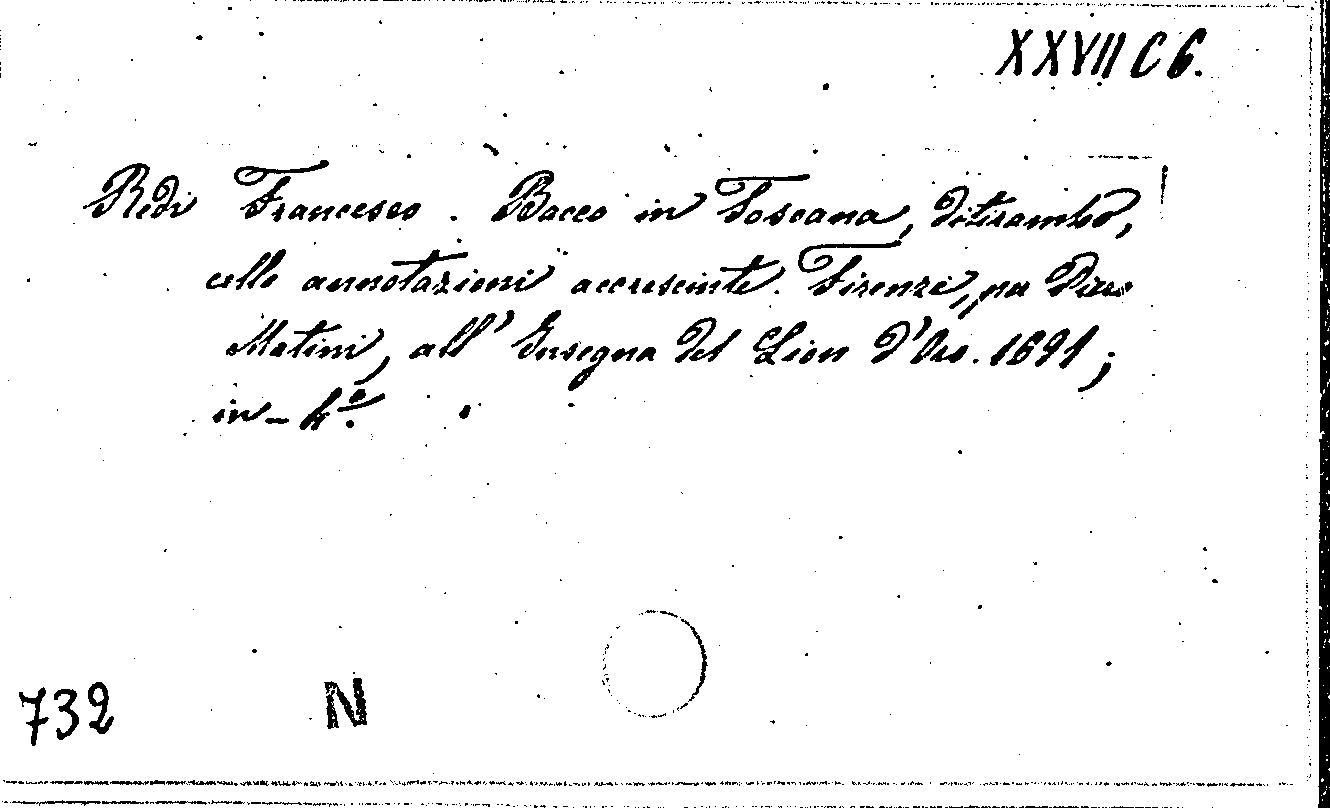 XXVII C 6.
Redi Francesco. Bacco in Toscana, ditirambo,
colle annotazioni accresciute. Firenze, per Piero
Matini, all' Insegna del Lion d'Oro. 1691;
in-4º.
732 N